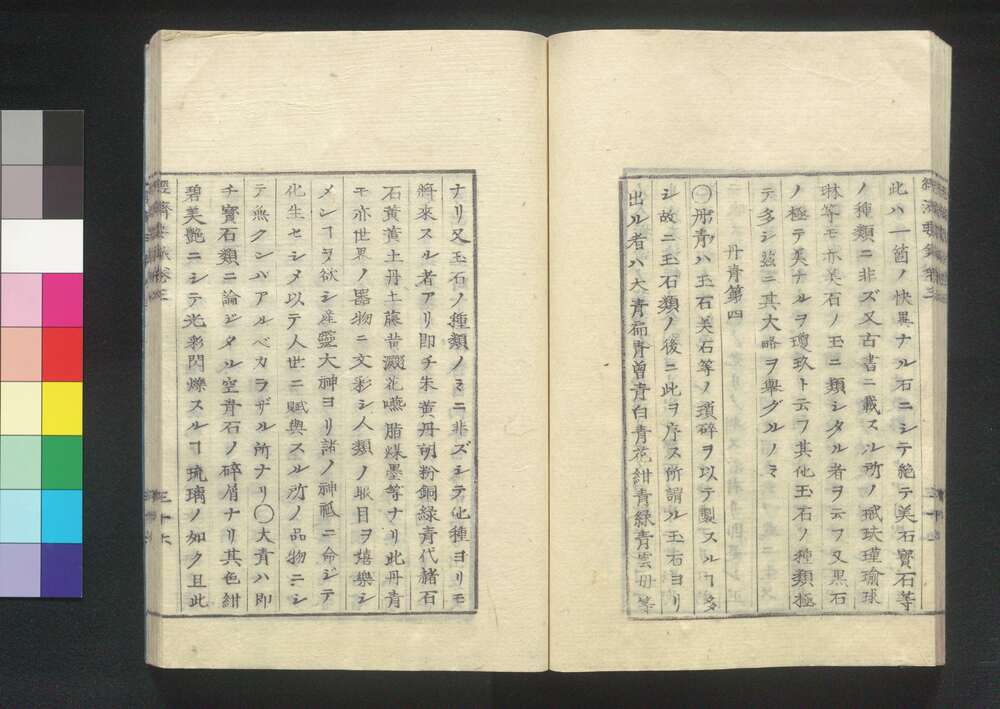 此ハ一箇ノ快異ナル石ニシテ絶テ美石寳石等
ノ種類ニ非ズ又古書ニ載スル所ノ珷玞瑾瑜球
琳等モ亦美石ノ玉ニ類シタル者ヲ云フ又黒石
ノ極テ美ナルヲ瓊玖ト云フ其他玉石ノ種類極
テ多シ玆ニ其大略ヲ舉グルノミ
丹青第四
〇丹青ハ玉石美石等ノ瑣碎ヲ以テ製スルヿ多
シ故ニ玉石類ノ後ニ此ヲ序ス所謂ル玉石ヨリ
出ル者ハ大青扁青曾青白青花紺青緑青雲母等
ナリ又玉石ノ種類ノミニ非ズシテ他種ヨリモ
將來スル者アリ即チ朱黄丹胡粉銅緑青代赭石
石黄黄土丹土藤黄澱花嚥脂煤墨等ナリ此丹青
モ亦世界ノ器物ニ文彩シ人類ノ眼目ヲ嬉樂シ
メンヿヲ欲シ産靈大神ヨリ諸ノ神祗ニ命ジテ
化生セシメ以テ人世ニ賦與スル所ノ品物ニシ
テ無クンバアルベカラザル所ナリ〇大青ハ即
チ寳石類ニ論ジタル空青石ノ碎屑ナリ其色紺
碧美艶ニシテ光彩閃爍スルヿ琉璃ノ如ク且此
經濟要録卷之三
三十六